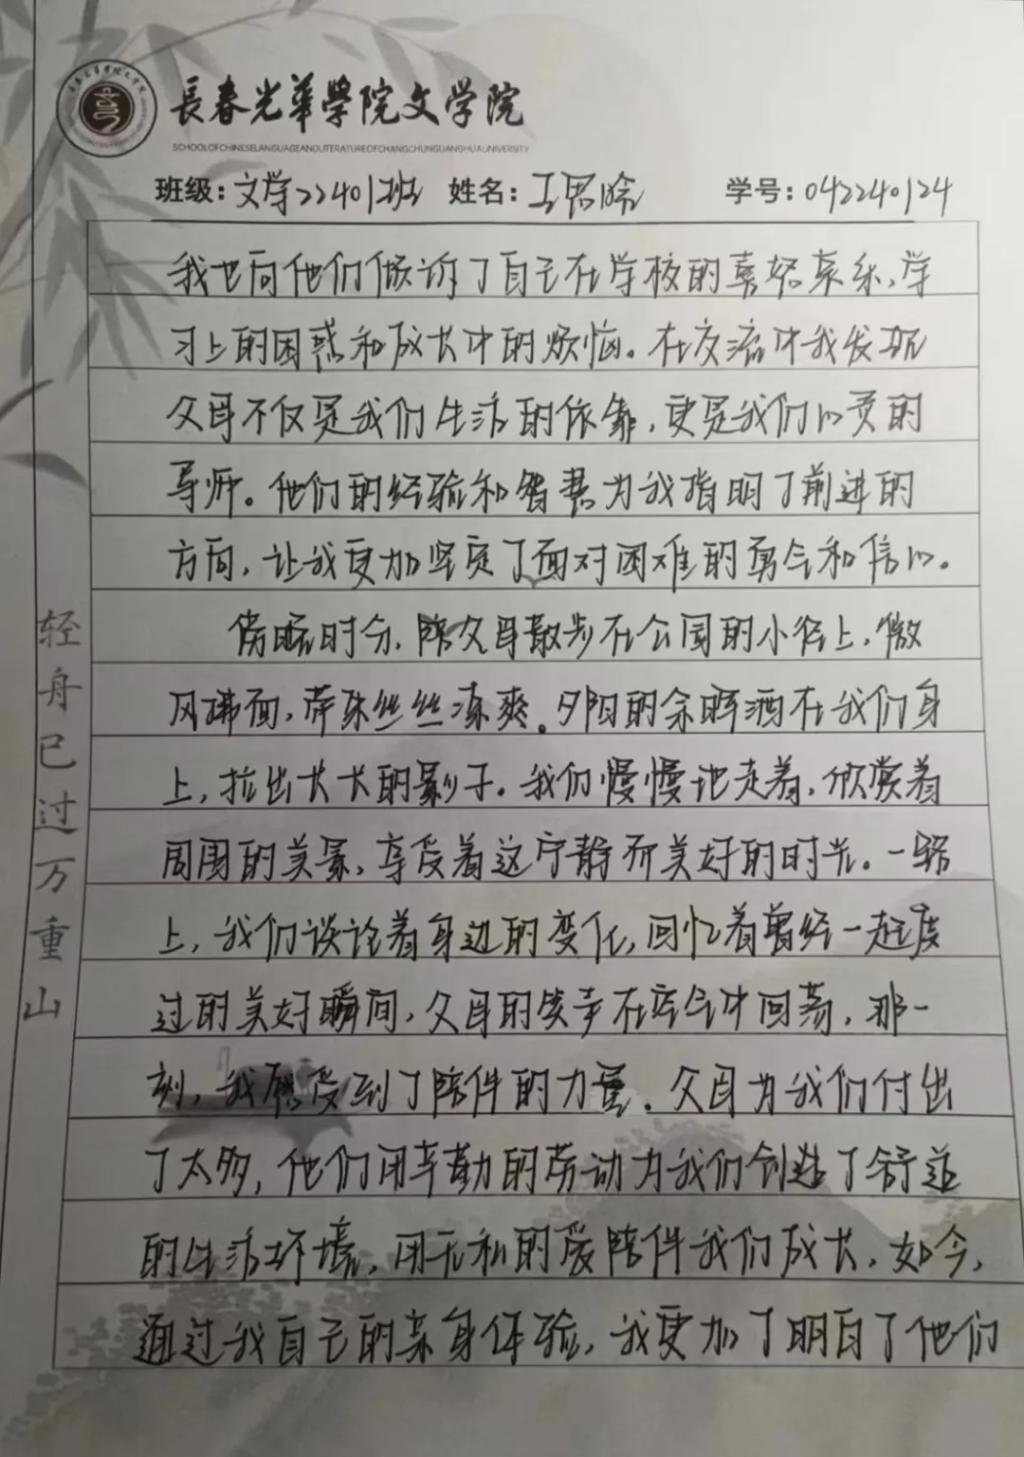 長春光華學院文学院
SCHOOLOFCHINESELANGUAGEANDLITERATUREOFCHANGCHUNGUANGHUAUNIVERSITY
班级:文学22401班 姓名:王思晗 学号:042240124
我也向他们倾诉了自己在学校的喜怒哀乐,学
习上的困惑和成长中的烦恼。在交流中我发现
父母不仅是我们生活的依靠,更是我们心灵的
导师。他们的经验和智慧为我指明了前进的
方向,让我更加坚定了面对困难的勇气和信心。
傍晚时分,陪父母散步在公园的小径上,微
风拂面,带来丝丝凉爽。夕阳的余晖洒在我们身
上,拉出长长的影子。我们慢慢地走着,欣赏着
周围的美景,享受着这宁静而美好的时光。一路
上,我们谈论着身边的变化,回忆着曾经一起度
过的美好瞬间,父母的笑声在空气中回荡,那一
刻,我感受到了陪伴的力量。父母为我们付出
了太多,他们用辛勤的劳动为我们创造了舒适
的生活环境,用无私的爱陪伴我们成长,如今,
通过我自己的亲身体验,我更加了明白了他们
轻舟已过万重山